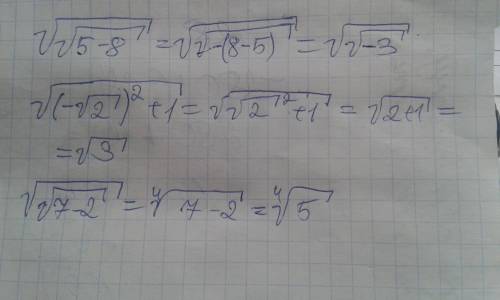 √√5-8 = √√-(8-5) = √√-3
√(-√2)² + 1 = √√2² + 1 = √2+1 =
= √3
√√7-2 = ⁴√7-2 = ⁴√5